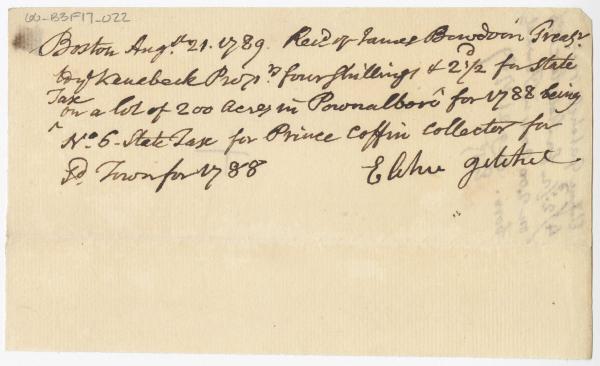 60-B3F17-022
Boston Augst. 21. 1789. Recd. of James Bowdoin Treasr.
to ye Kanebeck Props. four shillings & 2d 1/2 for State
Tax
^ on a lot of 200 acres in Pownalboro' for 1788 being
No 6 - State Tax for Prince Coffin Collector for
Sd. Town for 1788
Elihu Getchel